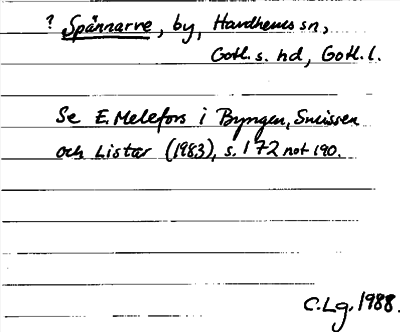 ? Spånnarve, by, Hardhems sn,
Gotl. s. hd, Gotl. l.
Se E. Melefors i Byngen, Smissen
och Listar (1983), s. 172 not 190.
C. Lg. 1988.